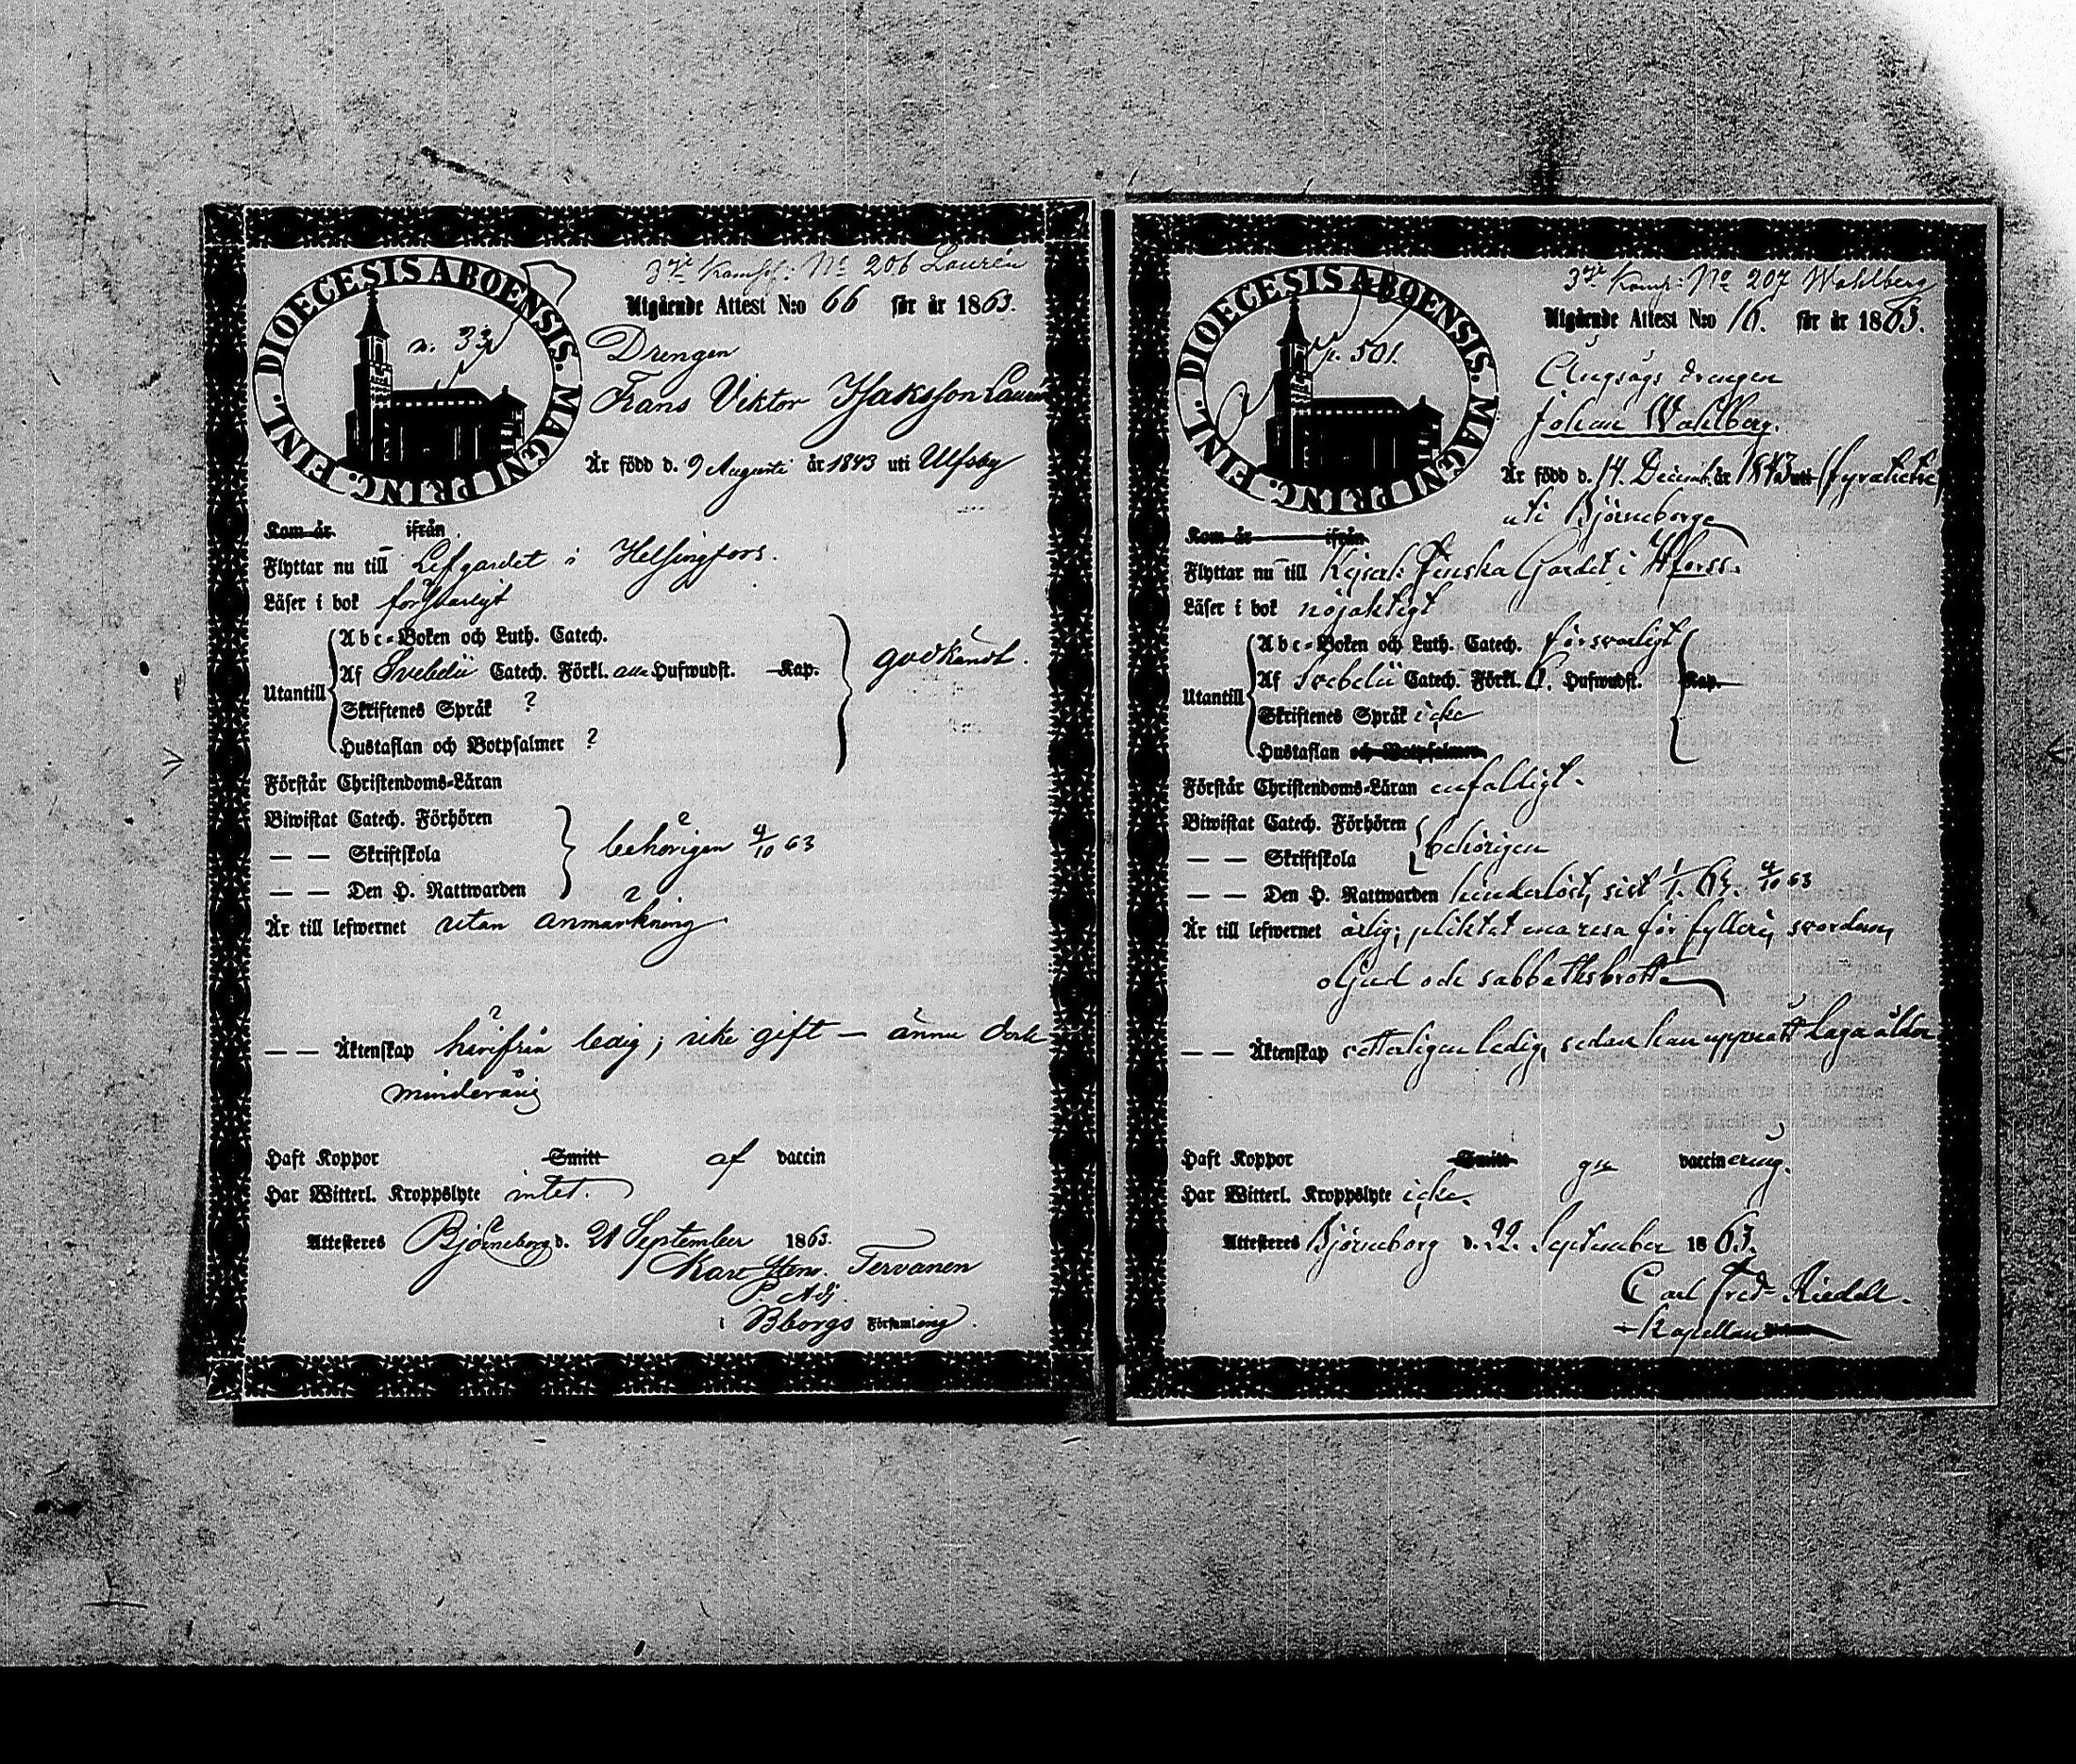 DIOECESIS ABOENSIS. MAGNI PRINC. FINL.
n. 33
3dje Komp: No 206 Laurén
Utgående Attest N:o 66 för år 1863.
Drengen
Frans Viktor Isaksson Laurén
Är född d. 9 Augusti år 1843 uti Ulfsby
Kom år ifrån
Flyttar nu till Lifgardet i Helsingfors.
Läser i bok försvarligt
Utantill
Abc-Boken och Luth. Catech.
Af Svebelii Catech. Förkl. alla Hufwudst. Kap.
godkändt.
Skriftenes Språk ?
Hustaflan och Botpsalmer ?
Förstår Christendoms-Läran
Biwistat Catech. Förhören
— — Skriftskola
behörigen 4/10 63
— — Den H. Nattwarden
Är till lefwernet utan anmärkning
— — Äktenskap härifrån ledig; icke gift — ännu dock
minderårig
Haft Koppor Smitt af vaccin
Har Witterl. Kroppslyte intet.
Attesteres Björneborg d. 21 September 1863.
Tervanen
P. Adj.
i Bborgs Församling.
DIOECESIS ABOENSIS. MAGNI PRINC. FINL.
p. 501.
3dje Komp: No 207 Wahlberg
Utgående Attest N:o 16. för år 1863.
Ångsågs drengen
Johan Wahlberg.
Är född d. 14. Decemb. år 1843 uti (fyratietre)
uti Björneborg
Kom år ifrån
Flyttar nu till Kejserl: Finska Gardet i Hforss.
Läser i bok nöjaktigt
Utantill
Abc-Boken och Luth. Catech. försvarligt
Af Svebelii Catech. Förkl. 6. Hufwudst. Kap.
Skriftenes Språk icke
Hustaflan och Botpsalmer
Förstår Christendoms-Läran enfaldigt.
Biwistat Catech. Förhören
— — Skriftskola
behörigen
— — Den H. Nattwarden hinderlöst, sist 1/1. 63. 4/10 63
Är till lefwernet ärlig; pliktat ena resa för fylleri, svordom,
oljud och sabbathsbrott
— — Äktenskap veterligen ledig, sedan han uppnått Laga ålder
Haft Koppor Smitt gm vaccinering.
Har Witterl. Kroppslyte icke.
Attesteres Björneborg d. 22. September 1863.
Carl Fred. Riedell.
Kapellan